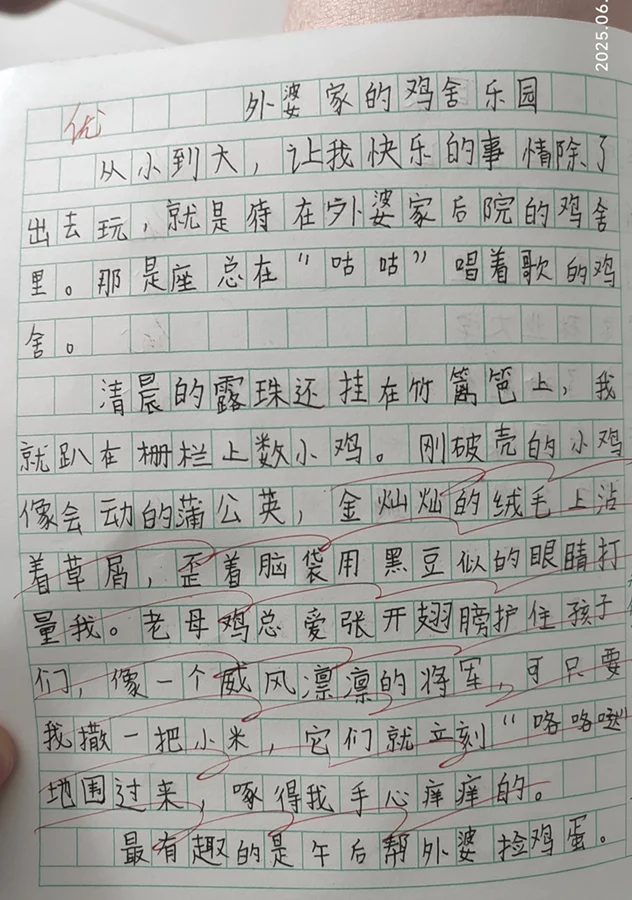 2025.06.
外婆家的鸡舍乐园
优
从小到大，让我快乐的事情除了
出去玩，就是待在外婆家后院的鸡舍
里。那是座总在“咕咕”唱着歌的鸡
舍。
清晨的露珠还挂在竹篱笆上，我
就趴在栅栏上数小鸡。刚破壳的小鸡
像会动的蒲公英，金灿灿的绒毛上沾
着草屑，歪着脑袋用黑豆似的眼睛打
量我。老母鸡总爱张开翅膀护住孩子
们，像一个威风凛凛的将军，可只要
我撒一把小米，它们就立刻“咯咯哒”
地围过来，啄得我手心痒痒的。
最有趣的是午后帮外婆捡鸡蛋。